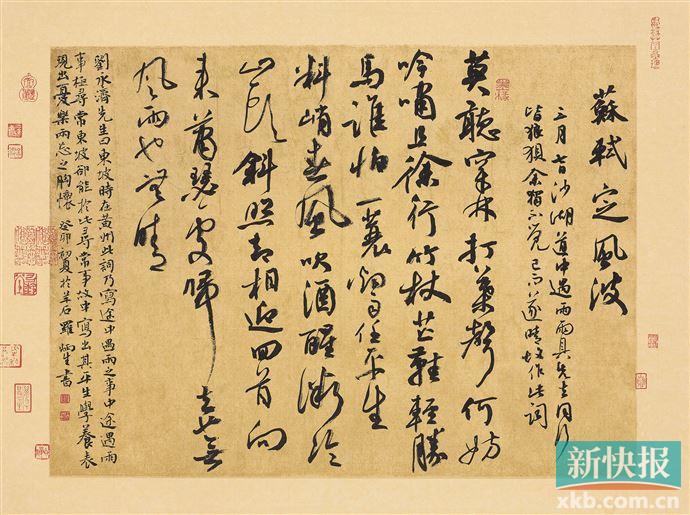 蘇軾定風波
三月七日沙湖道中遇雨雨具先去同行
皆狼狽余獨不覺已而遂晴故作此詞
莫聽穿林打葉聲何妨
吟嘯且徐行竹杖芒鞋輕勝
馬誰怕一蓑烟雨任平生
料峭春風吹酒醒微冷
山頭斜照却相迎回首向
來蕭瑟處歸去也無
風雨也無晴
劉永濟先生曰東坡時在黃州此詞乃寫途中遇雨之事中途遇雨
事極尋常東坡卻能於此尋常事故中寫出其平生學養表
現出憂樂兩忘之胸懷 癸卯初夏於羊石 羅炳生書
新快报
xkb.com.cn